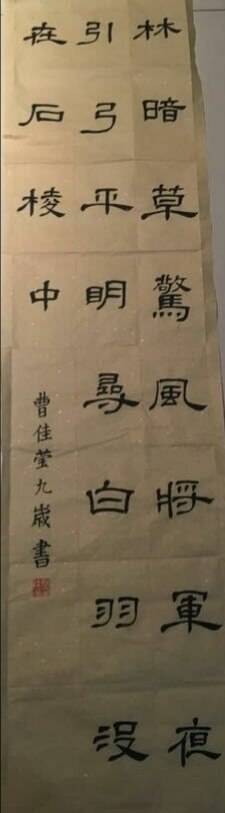 林暗草驚風將軍夜
引弓平明尋白羽沒
在石棱中
曹佳莹九歲書